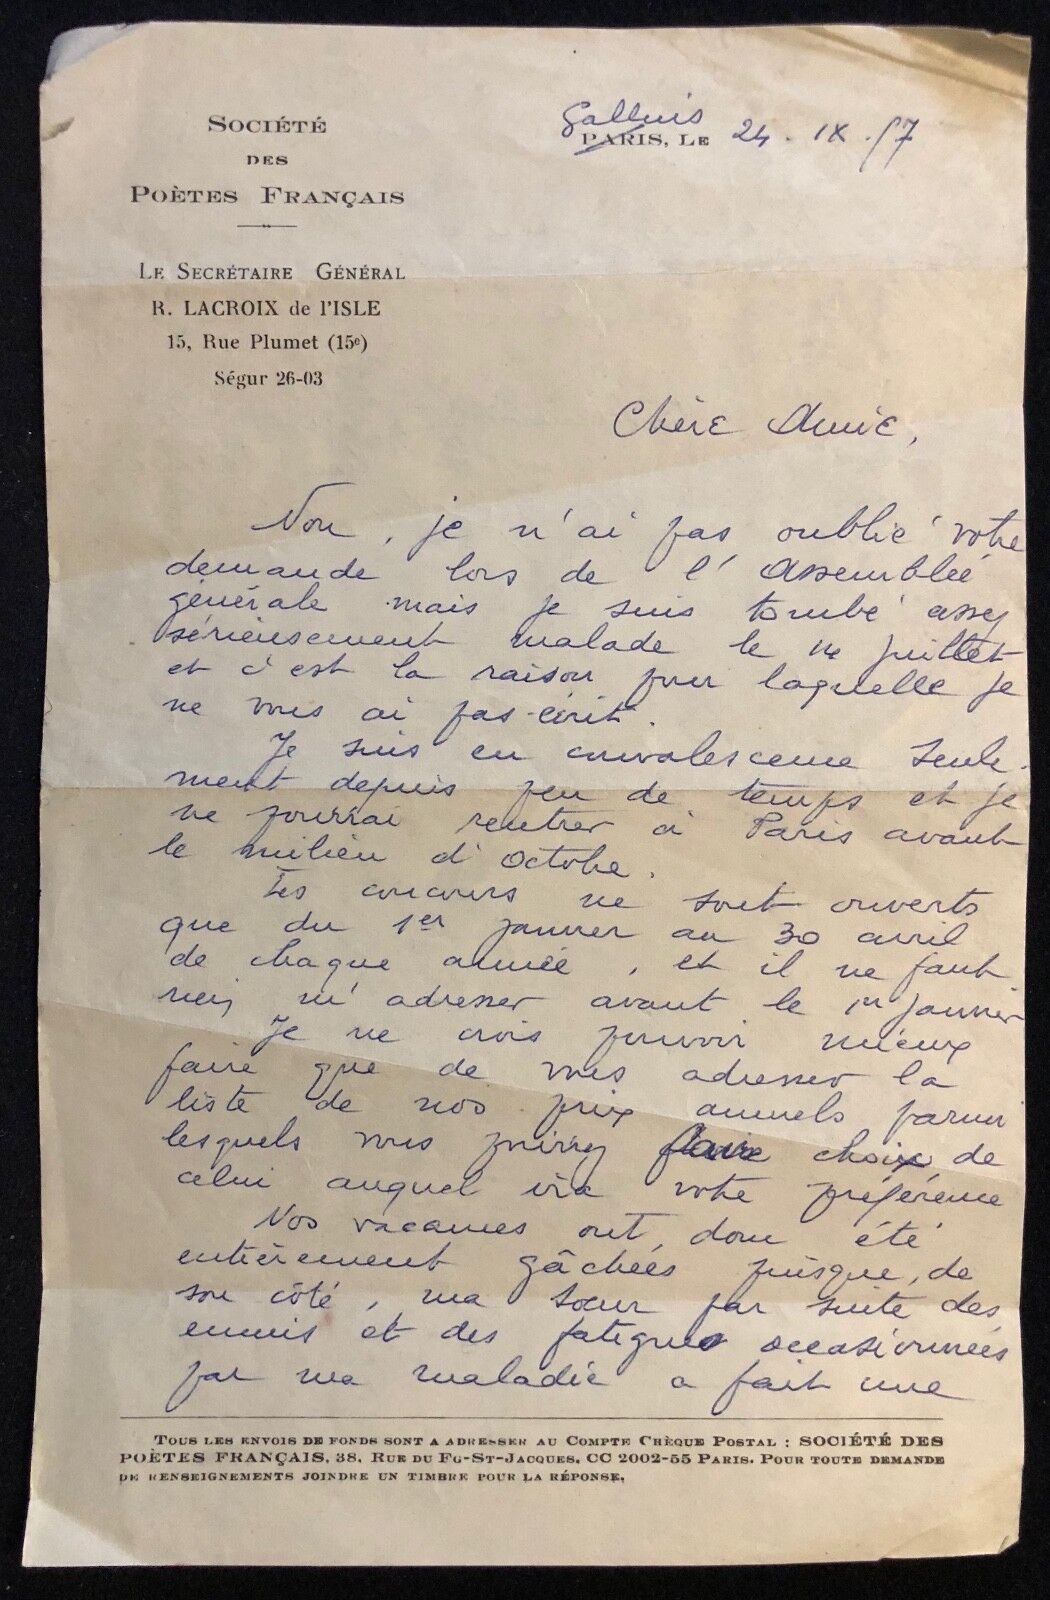 Société
des
Poètes Français
Le Secrétaire Général
R. LACROIX de l'ISLE
15, Rue Plumet (15e)
Ségur 26-03
Galluis
Paris, le 24 . IX . 57
Chère Amie,
Non, je n'ai pas oublié votre
demande lors de l'Assemblée
générale mais je suis tombé assez
sérieusement malade le 14 juillet
et c'est la raison pour laquelle je
ne vous ai pas écrit.
Je suis en convalescence seule-
ment depuis peu de temps et je
ne pourrai rentrer à Paris avant
le milieu d'Octobre.
Les concours ne sont ouverts
que du 1er janvier au 30 avril
de chaque année, et il ne faut
rien m'adresser avant le 1er janvier
Je ne crois pouvoir mieux
faire que de vous adresser la
liste de nos prix annuels parmi
lesquels vous pourrez faire choix de
celui auquel ira votre préférence
Nos vacances ont donc été
entièrement gâchées puisque, de
son côté, ma soeur par suite des
ennuis et des fatigues occasionnées
par ma maladie a fait une
Tous les envois de fonds sont a adresser au Compte Chèque Postal : SOCIÉTÉ DES
POÈTES FRANÇAIS, 38, Rue du Fg-St-Jacques, CC 2002-55 Paris. Pour toute demande
de renseignements joindre un timbre pour la réponse.